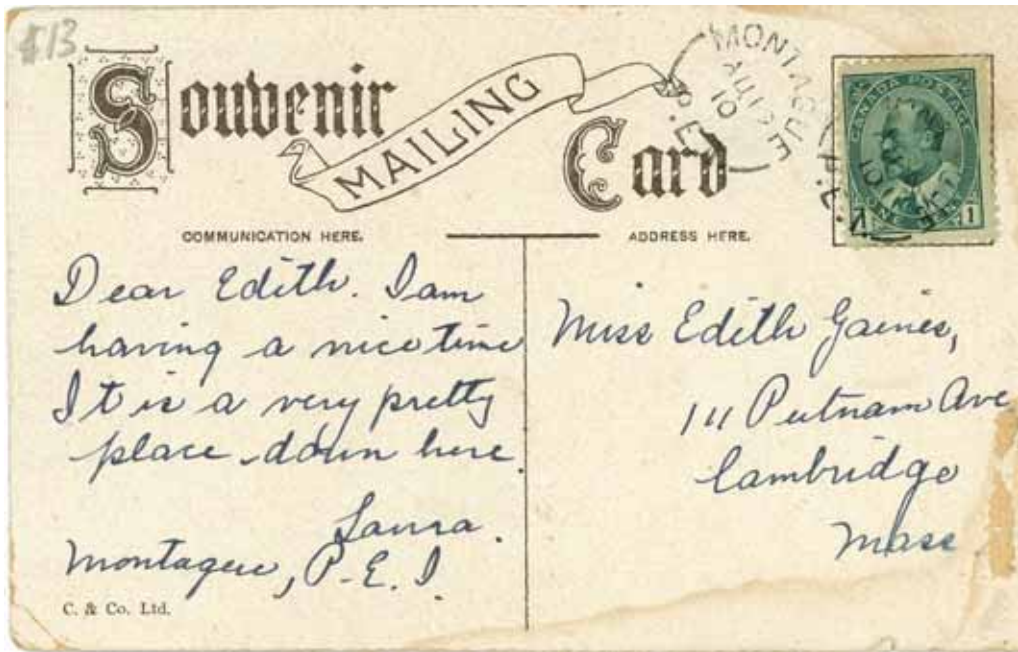 $13
Souvenir
MAILING
Card
MONTAGUE
AU 19
10
P.E.I.
CANADA POSTAGE
1
COMMUNICATION HERE.
ADDRESS HERE.
Dear Edith. I am
having a nice time
It is a very pretty
place down here.
Laura.
Montague, P.E.I.
C. & Co. Ltd.
Miss Edith Gaines,
111 Putnam Ave
Cambridge
Mass